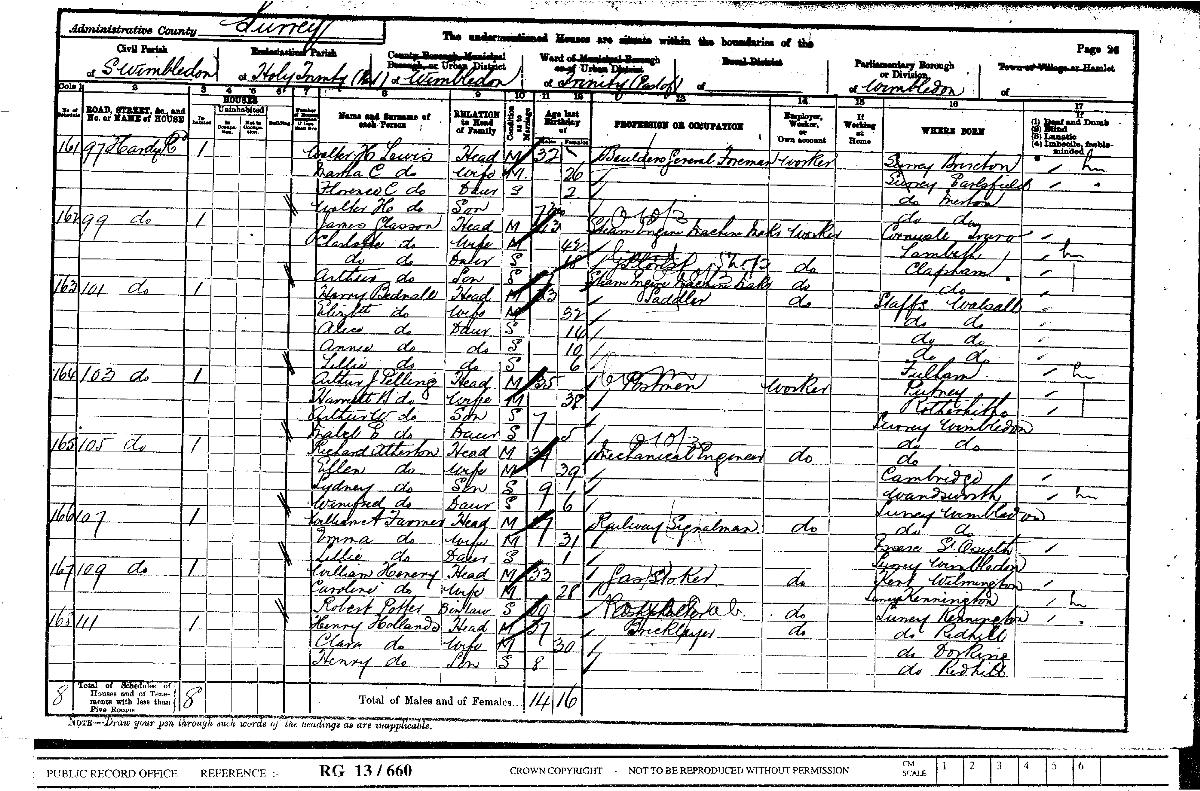 Administrative County Surrey
The undermentioned Houses are situate within the boundaries of the
Page 26
Civil Parish
of S Wimbledon
Ecclesiastical Parish
of Holy Trinity
County Borough, Municipal Borough, or Urban District
of Wimbledon
Ward of Municipal Borough or of Urban District
of Trinity (Part of)
Rural District
of
Parliamentary Borough or Division
of Wimbledon
Town or Village or Hamlet
of
ROAD, STREET, &c., and No. or NAME of HOUSE
HOUSES
Uninhabited
Name and Surname of each Person
RELATION to Head of Family
Condition as to Marriage
Age last Birthday of
Males Females
PROFESSION OR OCCUPATION
Employer, Worker, or Own account
If Working at Home
WHERE BORN
(1) Deaf and Dumb
(2) Blind
(3) Lunatic
(4) Imbecile, feeble-minded
161 97 Hardy 1 Walter H Lewis Head M 32 Builders General Foreman Worker Surrey Brixton
Martha C do Wife M 26 Surrey Earlsfield
Florence C do Daur S 2 do Merton
Walter H do Son do do
162 99 do 1 James Classon Head M Steam Engine Machine Worker Cornwall Truro
Charlotte do Wife M 42 Lambeth
do do Daur S 18 do Clapham
Arthur do Son S do do
163 101 do 1 Harry Bednall Head M Saddler do Staffs Walsall
Elizth do Wife M 32 do do
Alice do Daur S do do
Annie do do S 10 do do
Lillie do do S 6 Fulham
164 103 do 1 Arthur J Pelling Head M 35 Postman Worker Putney
Harriett do Wife M 38 Rotherhithe
Arthur W do Son S 7 Surrey Wimbledon
Mabel E do Daur S 5 do do
165 105 do 1 Richard Atherton Head M Mechanical Engineer do do
Ellen do Wife M 29 Cambridge
Sydney do Son S 9 Wandsworth
Winifred do Daur S 6 Surrey Wimbledon
166 107 1 William A Farmer Head M Railway Signalman do do do
Emma do Wife M 31 St Osyth
Lillie do Daur S 1 Surrey Wimbledon
167 109 do 1 William Henery Head M 33 Gas Stoker do Kent Wilmington
Caroline do Wife M 28 Surrey Kennington
Robert Potter S do Surrey Kennington
111 1 Henry Holland Head M Bricklayer do do Redhill
Clara do Wife M 30 do Dorking
Henry do Son S 8 do Redhill
8 Total of Schedules of Houses and of Tenements with less than Five Rooms 8
Total of Males and of Females... 14 16
NOTE—Draw your pen through such words of the headings as are inapplicable.
PUBLIC RECORD OFFICE REFERENCE :- RG 13 / 660 CROWN COPYRIGHT - NOT TO BE REPRODUCED WITHOUT PERMISSION CM SCALE 1 2 3 4 5 6